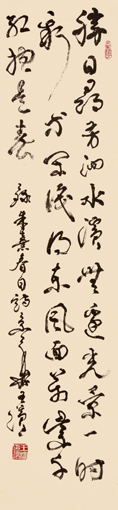 勝日尋芳泗水濱無邊光景一時
新等閒識得東風面萬紫千
紅總是春 錄朱熹春日詩